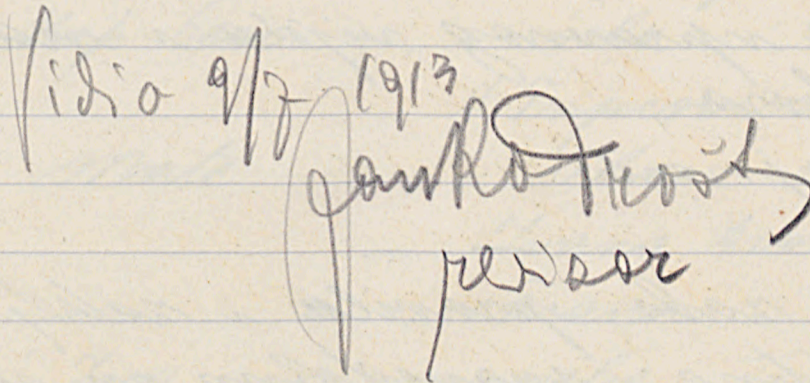 Vidio 9/7 1913
Janko Trošt
revisor